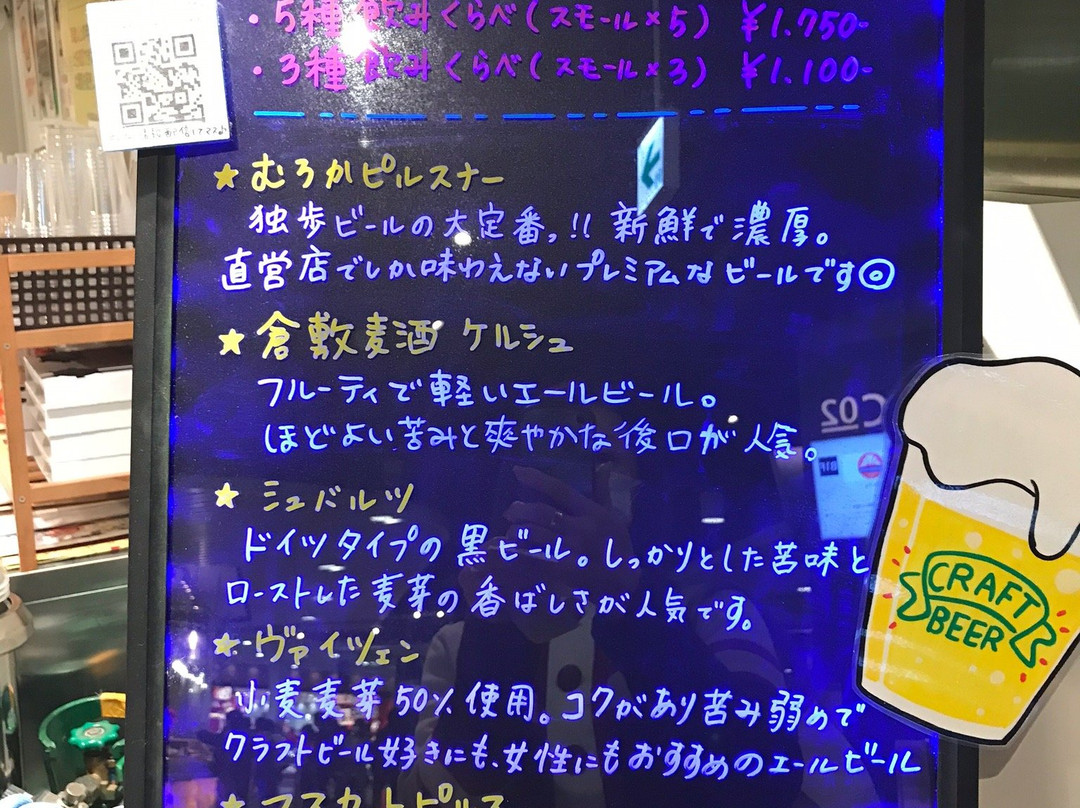 ・5種飲みくらべ(スモール×5) ¥1.750-
・3種飲みくらべ(スモール×3) ¥1.100-
★むろかピルスナー
独歩ビールの大定番っ!! 新鮮で濃厚。
直営店でしか味わえないプレミアムなビールです◎
★倉敷麦酒 ケルシュ
フルーティで軽いエールビール。
ほどよい苦みと爽やかな後口が人気。
★シュバルツ
ドイツタイプの黒ビール。しっかりとした苦味と
ローストした麦芽の香ばしさが人気です。
★ヴァイツェン
小麦麦芽50%使用。コクがあり苦み弱めで
クラフトビール好きにも、女性にもおすすめのエールビール
★マスカットピルス
CRAFT
BEER
C02
B1F